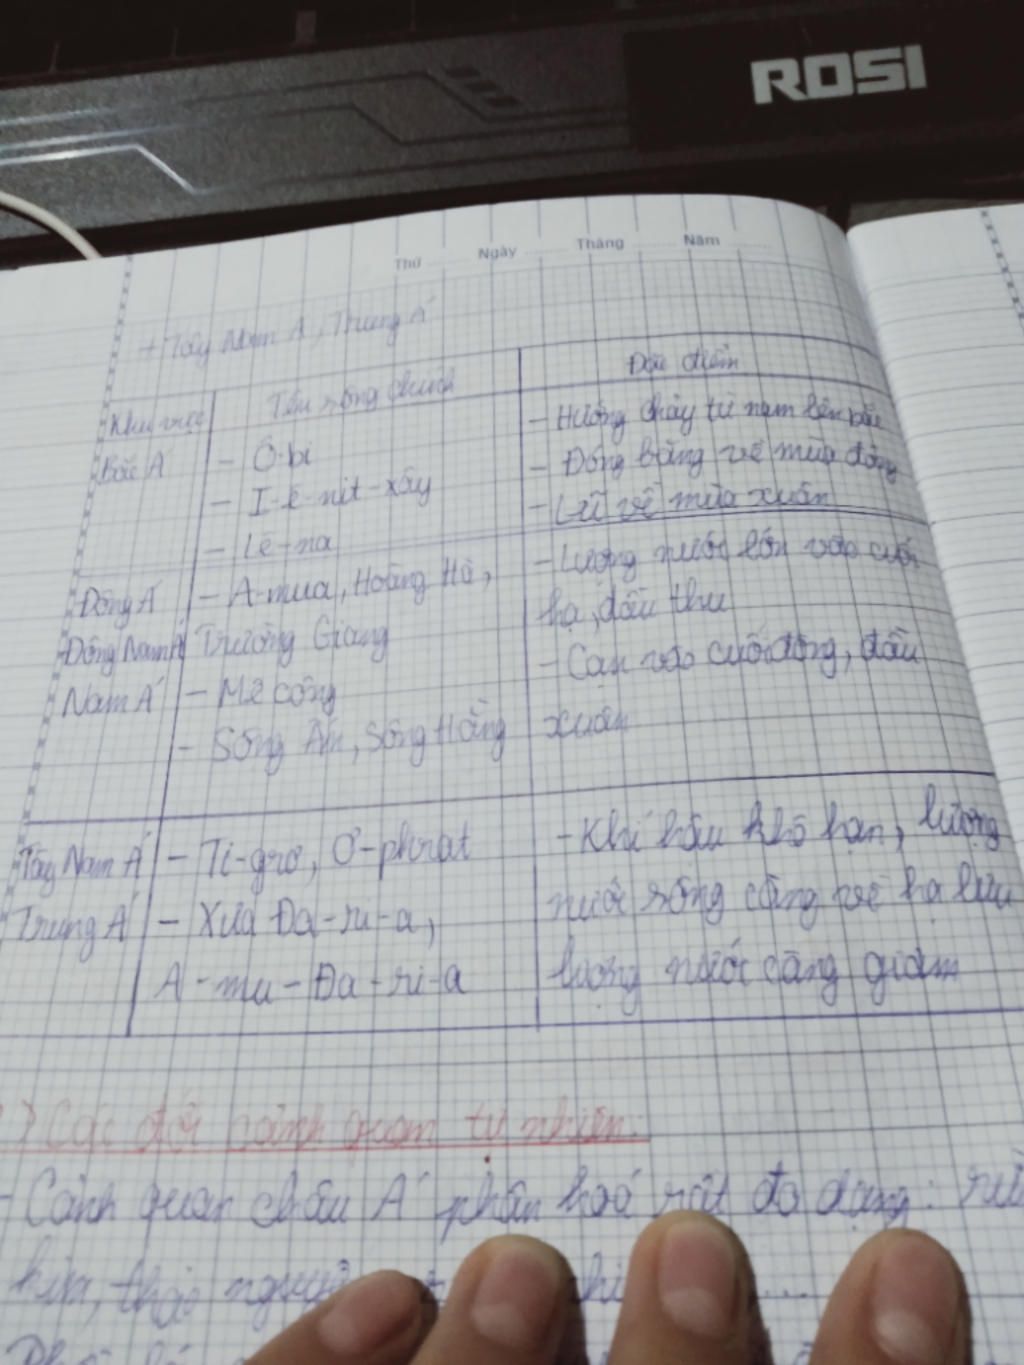 ROSI
Thứ Ngày Tháng Năm
+ Tây Nam Á, Trung Á
Khu vực
Tên sông chính
Đặc điểm
Bắc Á
- Ô-bi
- I-ê-nit-xây
- Lê-na
- Hướng chảy từ nam lên bắc
- Đóng băng về mùa đông
- Lũ về mùa xuân
Đông Á
Đông Nam Á
Nam Á
- A-mua, Hoàng Hà,
Trường Giang
- Mê công
- Sông Ấn, Sông Hằng
- Lượng nước lớn vào cuối
hạ, đầu thu
- Cạn vào cuối đông, đầu
xuân
Tây Nam Á
Trung Á
- Ti-grơ, Ơ-phrat
- Xưa Đa-ri-a,
A-mu-Đa-ri-a
- Khí hậu khô hạn, lượng
nước sông càng về hạ lưu
lượng nước càng giảm
) Các đới cảnh quan tự nhiên:
- Cảnh quan châu Á phân hoá rất đa dạng:
kim, thảo